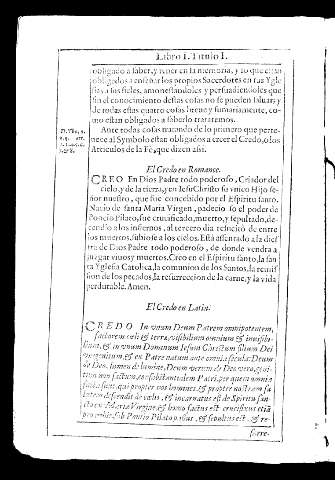 Libro I. Titulo I.
obligado a saber, y tener en la memoria, y lo que estan
obligados a enseñar los propios Sacerdotes en sus Ygle
sias a los fieles, amonestandoles y persuadiendoles que
sin el conocimiento destas cosas no se pueden saluar; y
de todas estas quatro cosas breue y sumariamente, co-
mo estan obligados a saberlo trataremos.
Ante todas cosas tratando de lo primero que perte-
nece al Symbolo estan obligados a creer el Credo, o los
Articulos de la Fè, que dizen assi.
El Credo en Romance.
CREO En Dios Padre todo poderoso, Criador del
cielo, y de la tierra, y en Iesu Christo su vnico Hijo se-
ñor nuestro, que fue concebido por el Espiritu santo,
Nacio de santa Maria Virgen, padecio so el poder de
Poncio Pilato, fue crucificado, muerto, y sepultado, de-
cendio a los infiernos, al tercero dia resucitó de entre
los muertos, subiose a los cielos, Està assentado a la dies
tra de Dios Padre todo poderoso, de donde vendra a
juzgar viuos y muertos. Creo en el Espiritu santo, la san
ta Yglesia Catolica, la comunion de los Santos, la remiss
sion de los pecados, la resurreccion de la carne, y la vida
perdurable. Amen.
El Credo en Latin.
CREDO In vnum Deum Patrem omnipotentem,
factorem cæli & terræ, visibilium omnium & inuisibi-
lium, & in vnum Dominum Iesum Christum filium Dei
vnigenitum, & ex Patre natum ante omnia sæcula: Deum
de Deo, lumen de lumine, Deum verum de Deo vero, geni-
tum non factum, consubstantialem Patri, per quem omnia
facta sunt, qui propter vos homines, & propter nostram sa
lutem descendit de cælis, & incarnatus est de Spiritu san-
cto ex Maria Virgine, & homo factus est crucifixus etiã
pro nobis, sub Pontio Pilato passus, & sepultus est, & re-
surre-